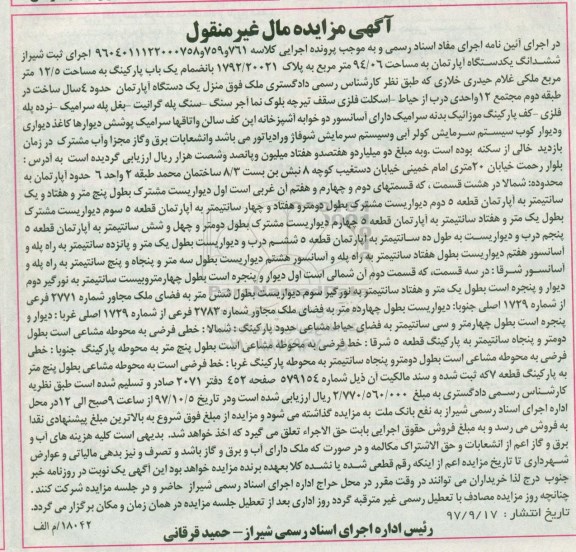 آگهی مزایده مال غیر منقول
در اجرای آئین نامه اجرای مفاد اسناد رسمی و به موجب پرونده اجرایی کلاسه ۷۶۱و۷۵۹و۹۶۰۴۰۱۱۱۲۲۰۰۰۷۵۸ اجرای ثبت شیراز
ششدانگ یکدستگاه آپارتمان به مساحت ۹۴/۰۶ متر مربع به پلاک ۱۷۹۲/۲۰۰۲۱ بانضمام یک باب پارکینگ به مساحت ۱۲/۵ متر
مربع ملکی غلام حیدری خلاری که طبق نظر کارشناس رسمی دادگستری ملک فوق منزل یک دستگاه آپارتمان حدود ۴سال ساخت در
طبقه دوم مجتمع ۱۲واحدی درب از حیاط -اسکلت فلزی سقف تیرچه بلوک نما آجر سنگ -سنگ پله گرانیت -بغل پله سرامیک -نرده پله
فلزی -کف پارکینگ موزائیک بدنه سرامیک دارای آسانسور دو خوابه آشپزخانه این کف سالن واتاقها سرامیک پوشش دیوارها کاغذ دیواری
ودیوار کوب سیستم سرمایش کولر آبی وسیستم سرمایش شوفاژ ورادیاتور می باشد وانشعابات برق وگاز مجزا وآب مشترک در زمان
بازدید خالی از سکنه بوده است .وبه مبلغ دو میلیاردو هفتصدو هفتاد میلیون وپانصد وشصت هزار ریال ارزیابی گردیده است به آدرس :
بلوار رحمت خیابان ۲۰متری امام خمینی خیابان دستغیب کوچه ۸ نبش بن بست ۸/۳ ساختمان محمد طبقه ۲ واحد ۶ حدود آپارتمان به
محدوده: شمالا در هشت قسمت ، که قسمتهای دوم و چهارم و هفتم آن غربی است اول دیواریست مشترک بطول پنج متر و هفتاد و یک
سانتیمتر به آپارتمان قطعه ۵ دوم دیواریست مشترک بطول دومترو هفتاد و چهار سانتیمتر به آپارتمان قطعه ۵ سوم دیواریست مشترک
بطول یک متر و هفتاد سانتیمتر به آپارتمان قطعه ۵ چهارم دیواریست مشترک بطول دومتر و چهل و شش سانتیمتر به آپارتمان قطعه ۵
پنجم درب و دیواریست به طول ده سانتیمتر به آپارتمان قطعه ۵ ششم درب و دیواریست بطول یک متر و پانزده سانتیمتر به راه پله و
آسانسور هفتم دیواریست بطول هفتاد سانتیمتر به راه پله و آسانسور هشتم دیواریست بطول سه متر و پنجاه و پنج سانتیمتر به راه پله و
آسانسور شرقا : در سه قسمت، که قسمت دوم آن شمالی است اول دیوار و پنجره است بطول چهارمتروبیست سانتیمتر به نورگیر دوم
دیوار و پنجره است بطول یک متر و هفتاد سانتیمتر به نورگیر سوم دیواریست بطول شش متر به فضای ملک مجاور شماره ۲۷۷۱ فرعی
از شماره ۱۷۲۹ اصلی جنوبا: دیواریست بطول چهارده متر به فضای ملک مجاور شماره ۲۷۸۳ فرعی از شماره ۱۷۲۹ اصلی غربا : دیوار و
پنجره است بطول چهارمتر و سی سانتیمتر به فضای حیاط مشاعی حدود پارکینگ : شمالا : خطی فرضی به محوطه مشاعی است بطول
دومتر و پنجاه سانتیمتر به پارکینگ قطعه ۵ شرقا : خط فرضی به محوطه مشاعی است بطول پنج متر به محوطه پارکینگ جنوبا : خطی
فرضی به محوطه مشاعی است بطول دومترو پنجاه سانتیمتر به محوطه پارکینگ غربا : خط فرضی است به محوطه مشاعی بطول پنج متر
به پارکینگ قطعه ۷که ثبت شده و سند مالکیت آن ذیل شماره ۵۷۹۱۵۴ صفحه ۴۵۲ دفتر ۲۰۷۱ صادر و تسلیم شده است طبق نظریه
کارشناس رسمی دادگستری به مبلغ ۲/۷۷۰/۵۶۰/۰۰۰ ریال ارزیابی شده است ودر تاریخ ۹۷/۱۰/۵ از ساعت ۹صبح الی ۱۲در محل
اداره اجرای اسناد رسمی شیراز به نفع بانک ملت به مزایده گذاشته می شود و مزایده از مبلغ فوق شروع به بالاترین مبلغ پیشنهادی نقدا
به فروش می رسد و به مبلغ فروش حقوق اجرایی بابت حق الاجراء تعلق می گیرد که اخذ خواهد شد. بدیهی است کلیه هزینه های آب و
برق و گاز اعم از انشعابات و حق الاشتراک مکالمه و در صورت که ملک دارای آب و برق و گاز باشد و تصرف و نیز بدهی مالیاتی و عوارض
شهرداری تا تاریخ مزایده اعم از اینکه رقم قطعی شده یا نشده کلا بعهده برنده مزایده خواهد بود این آگهی یک نوبت در روزنامه خبر
جنوب درج لذا خریداران می توانند در وقت مقرر در محل حراج اداره اجرای اسناد رسمی شیراز حاضر و در جلسه مزایده شرکت کنند .
چنانچه روز مزایده مصادف با تعطیل رسمی غیر مترقبه گردد روز اداری بعد از تعطیل جلسه مزایده در همان زمان و مکان برگزار می گردد.
تاریخ انتشار : ۹۷/۹/۱۷
۱۸۰۴۲/م الف
رئیس اداره اجرای اسناد رسمی شیراز – حمید قرقانی